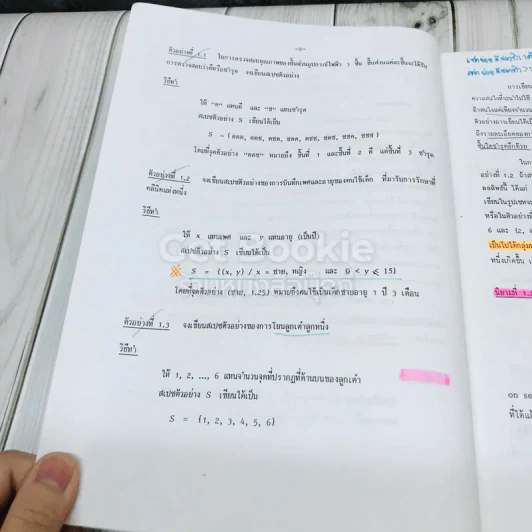 -2-
ตัวอย่างที่ 1.1 ในการตรวจสอบคุณภาพของชิ้นส่วนอุปกรณ์ไฟฟ้า 3 ชิ้น ชิ้นส่วนแต่ละชิ้นจะได้รับ
การตรวจสอบว่าดีหรือชำรุด จงเขียนสเปซตัวอย่าง
วิธีทำ
ให้ "ด" แทนดี และ "ช" แทนชำรุด
สเปซตัวอย่าง S เขียนได้เป็น
โดยที่จุดตัวอย่าง "ดดช" หมายถึง ชิ้นที่ 1 และชิ้นที่ 2 ดี แต่ชิ้นที่ 3 ชำรุด
ตัวอย่างที่ 1.2 จงเขียนสเปซตัวอย่างของการบันทึกเพศและอายุของคนไข้เด็ก ที่มารับการรักษาที่
คลินิคแห่งหนึ่ง
วิธีทำ
ให้ x แทนเพศ และ y แทนอายุ (เป็นปี)
สเปซตัวอย่าง S เขียนได้เป็น
S = {(x, y) / x = ชาย, หญิง และ 0 < y ⩽ 15}
โดยที่จุดตัวอย่าง (ชาย, 1.25) หมายถึงคนไข้เป็นเด็กชายอายุ 1 ปี 3 เดือน
ตัวอย่างที่ 1.3 จงเขียนสเปซตัวอย่างของการโยนลูกเต๋าลูกหนึ่ง
วิธีทำ
ให้ 1, 2, ..., 6 แทนจำนวนจุดที่ปรากฏที่ด้านบนของลูกเต๋า
สเปซตัวอย่าง S เขียนได้เป็น
S = {1, 2, 3, 4, 5, 6}
การเขียน
ความสนใจที่จะนำไปใช้
ตัวอย่างอาจเขียนได้เป็
ในก
อย่างที่ 1.2 ถ้าเส
ผลลัพธ์นี้ ได้แก่
เขียนในรูปเซทจะ
หรือในตัวอย่างที่
6 และ {2, 4
เป็นไปได้กลุ่มห
หนึ่งเกิดขึ้น
นิยามที่ 1.2
on se
ที่ได้แ